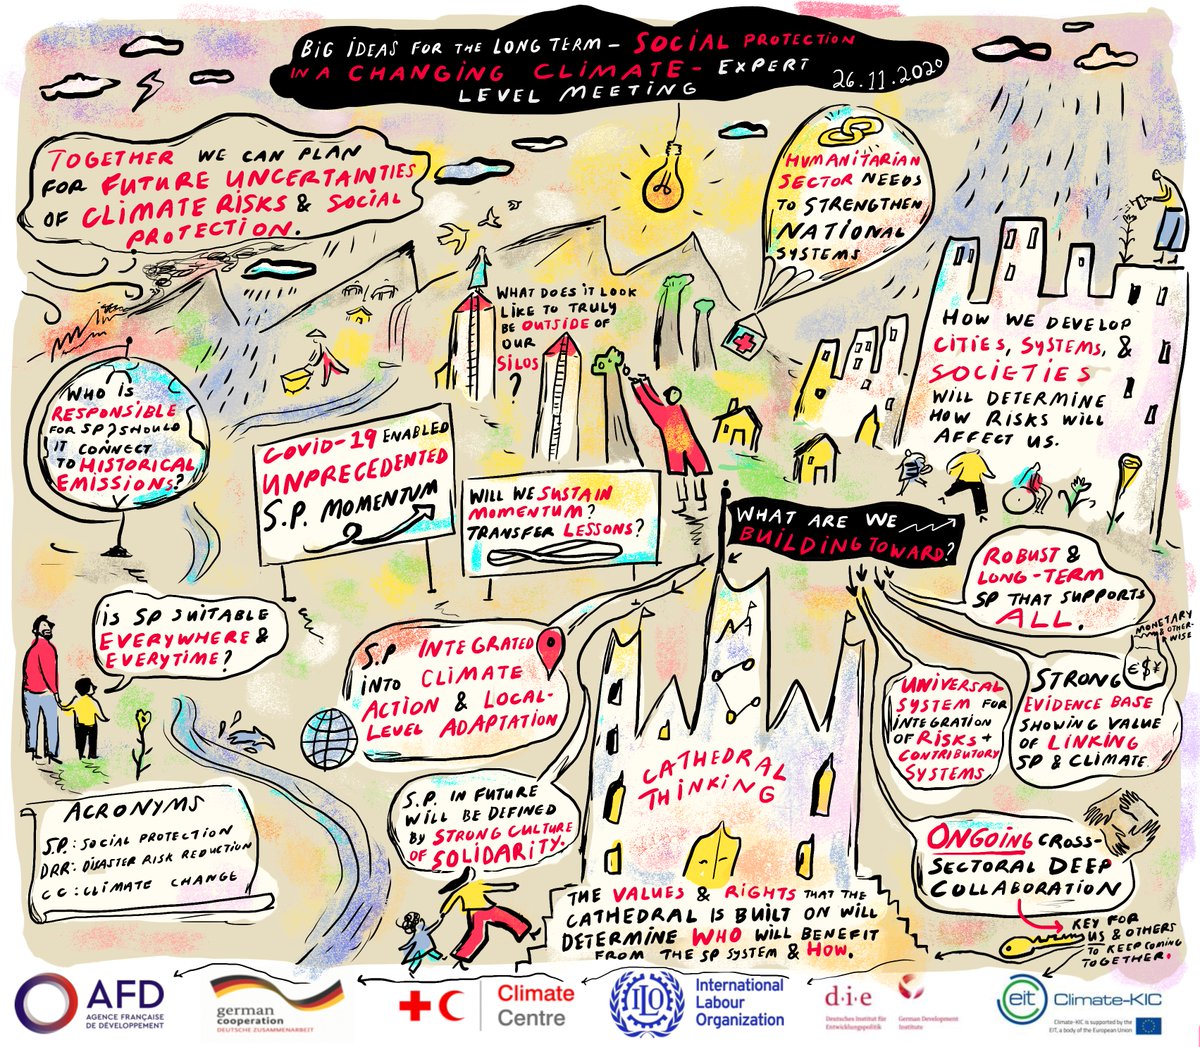 BIG IDEAS FOR THE LONG TERM – SOCIAL PROTECTION
IN A CHANGING CLIMATE – EXPERT
LEVEL MEETING
26.11.2020
TOGETHER WE CAN PLAN
FOR FUTURE UNCERTAINTIES
OF CLIMATE RISKS & SOCIAL
PROTECTION.
HUMANITARIAN
SECTOR NEEDS
TO STRENGTHEN
NATIONAL
SYSTEMS
WHAT DOES IT LOOK
LIKE TO TRULY
BE OUTSIDE OF
OUR
SILOS
?
HOW WE DEVELOP
CITIES, SYSTEMS, &
SOCIETIES
WILL DETERMINE
HOW RISKS WILL
AFFECT US.
WHO IS
RESPONSIBLE
FOR SP? SHOULD
IT CONNECT
TO HISTORICAL
EMISSIONS?
COVID-19 ENABLED
UNPRECEDENTED
S.P. MOMENTUM
WILL WE SUSTAIN
MOMENTUM?
TRANSFER LESSONS?
WHAT ARE WE
BUILDING TOWARD?
ROBUST &
LONG-TERM
SP THAT SUPPORTS
ALL.
IS SP SUITABLE
EVERYWHERE &
EVERYTIME?
S.P INTEGRATED
INTO CLIMATE
ACTION & LOCAL-
LEVEL ADAPTATION
UNIVERSAL
SYSTEM FOR
INTEGRATION
OF RISKS +
CONTRIBUTORY
SYSTEMS
MONETARY
& OTHER-
WISE
€$¥
STRONG
EVIDENCE BASE
SHOWING VALUE
OF LINKING
SP & CLIMATE
CATHEDRAL
THINKING
S.P. IN FUTURE
WILL BE DEFINED
BY STRONG CULTURE
OF SOLIDARITY.
ACRONYMS
S.P.: SOCIAL PROTECTION
DRR: DISASTER RISK REDUCTION
CC: CLIMATE CHANGE
ONGOING CROSS-
SECTORAL DEEP
COLLABORATION
THE VALUES & RIGHTS THAT THE
CATHEDRAL IS BUILT ON WILL
DETERMINE WHO WILL BENEFIT
FROM THE SP SYSTEM & HOW.
KEY FOR
US & OTHERS
TO KEEP COMING
TOGETHER.
AFD
AGENCE FRANÇAISE
DE DÉVELOPPEMENT
german
cooperation
DEUTSCHE ZUSAMMENARBEIT
Climate
Centre
ILO
International
Labour
Organization
d·i·e
Deutsches Institut für
Entwicklungspolitik
German Development
Institute
eit
Climate-KIC
Climate-KIC is supported by the
EIT, a body of the European Union